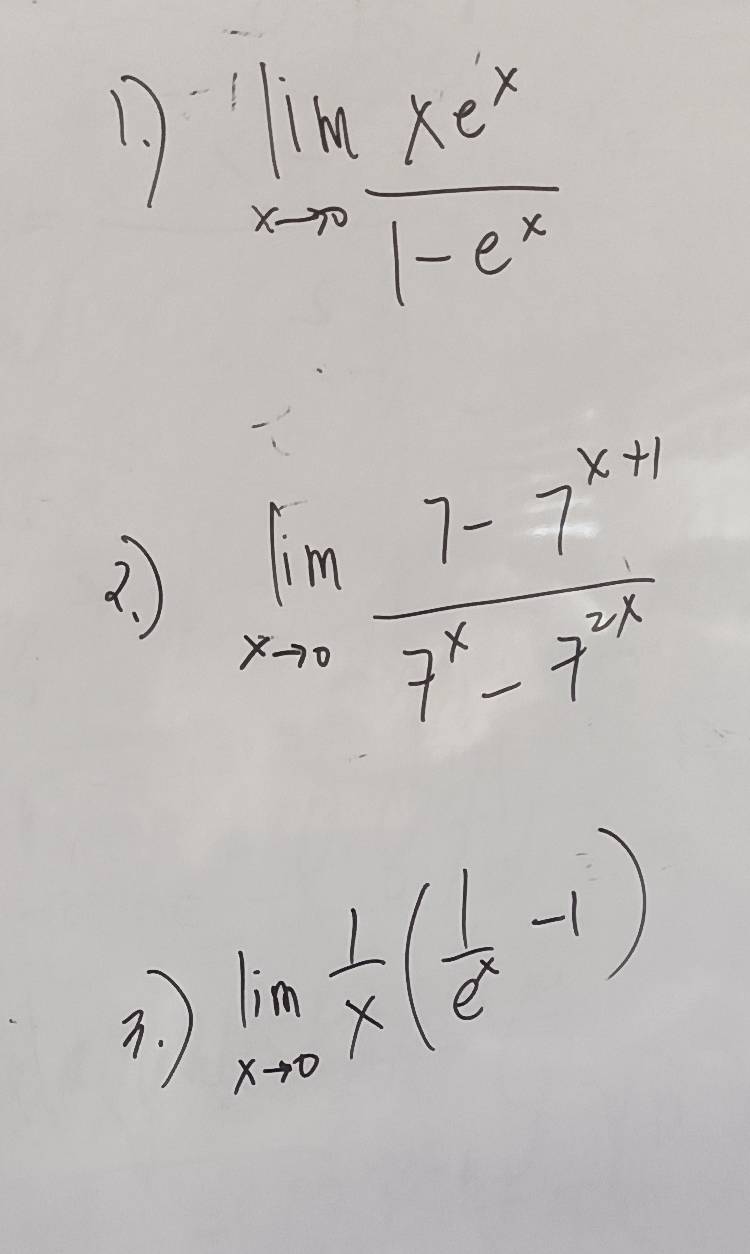 1.) lim x→0 xe^x / 1-e^x
2.) lim x→0 7-7^x+1 / 7^x-7^2x
3.) lim x→0 1/x (1/e^x -1)